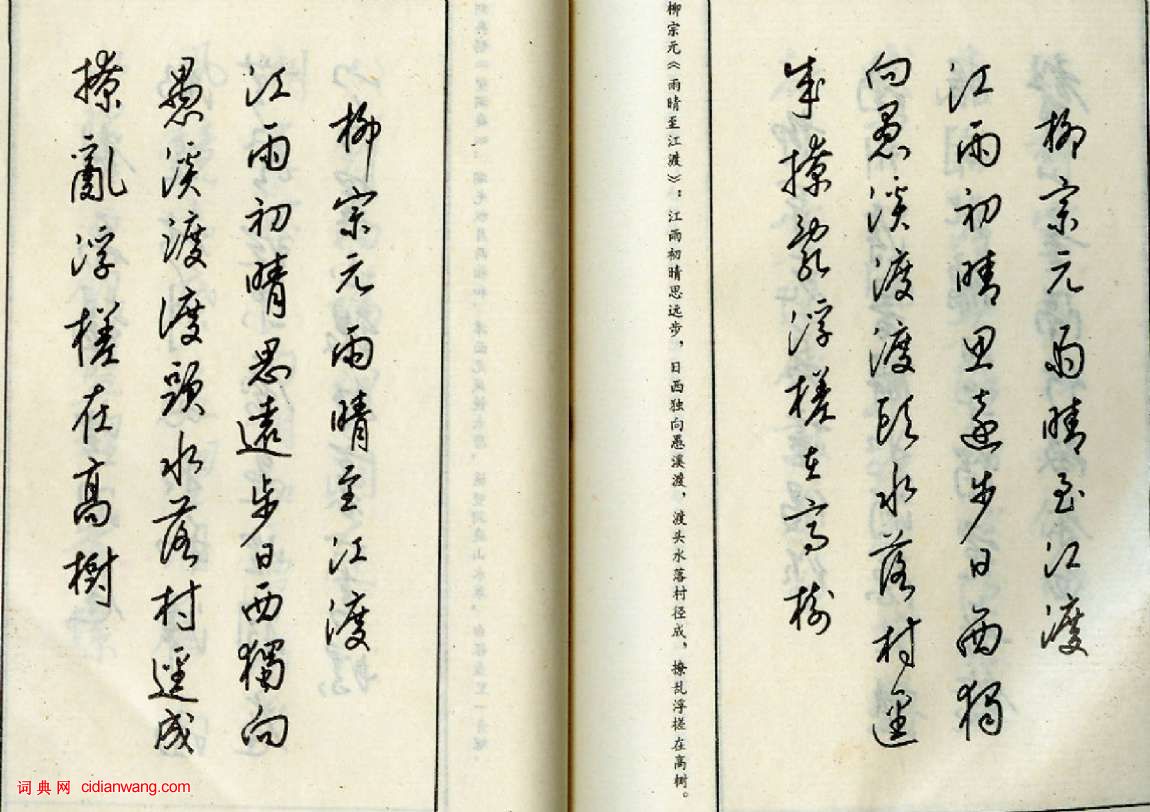 柳宗元雨晴至江渡
江雨初晴思遠步日西獨
向愚溪渡渡頭水落村逕
成撩亂浮槎在高樹
柳宗元《雨晴至江渡》：江雨初晴思远步，日西独向愚溪渡，渡头水落村径成，撩乱浮槎在高树。
柳宗元雨晴至江渡
江雨初晴思遠步日西獨向
愚溪渡渡頭水落村逕成
撩亂浮槎在高樹
词典网 cidianwang.com